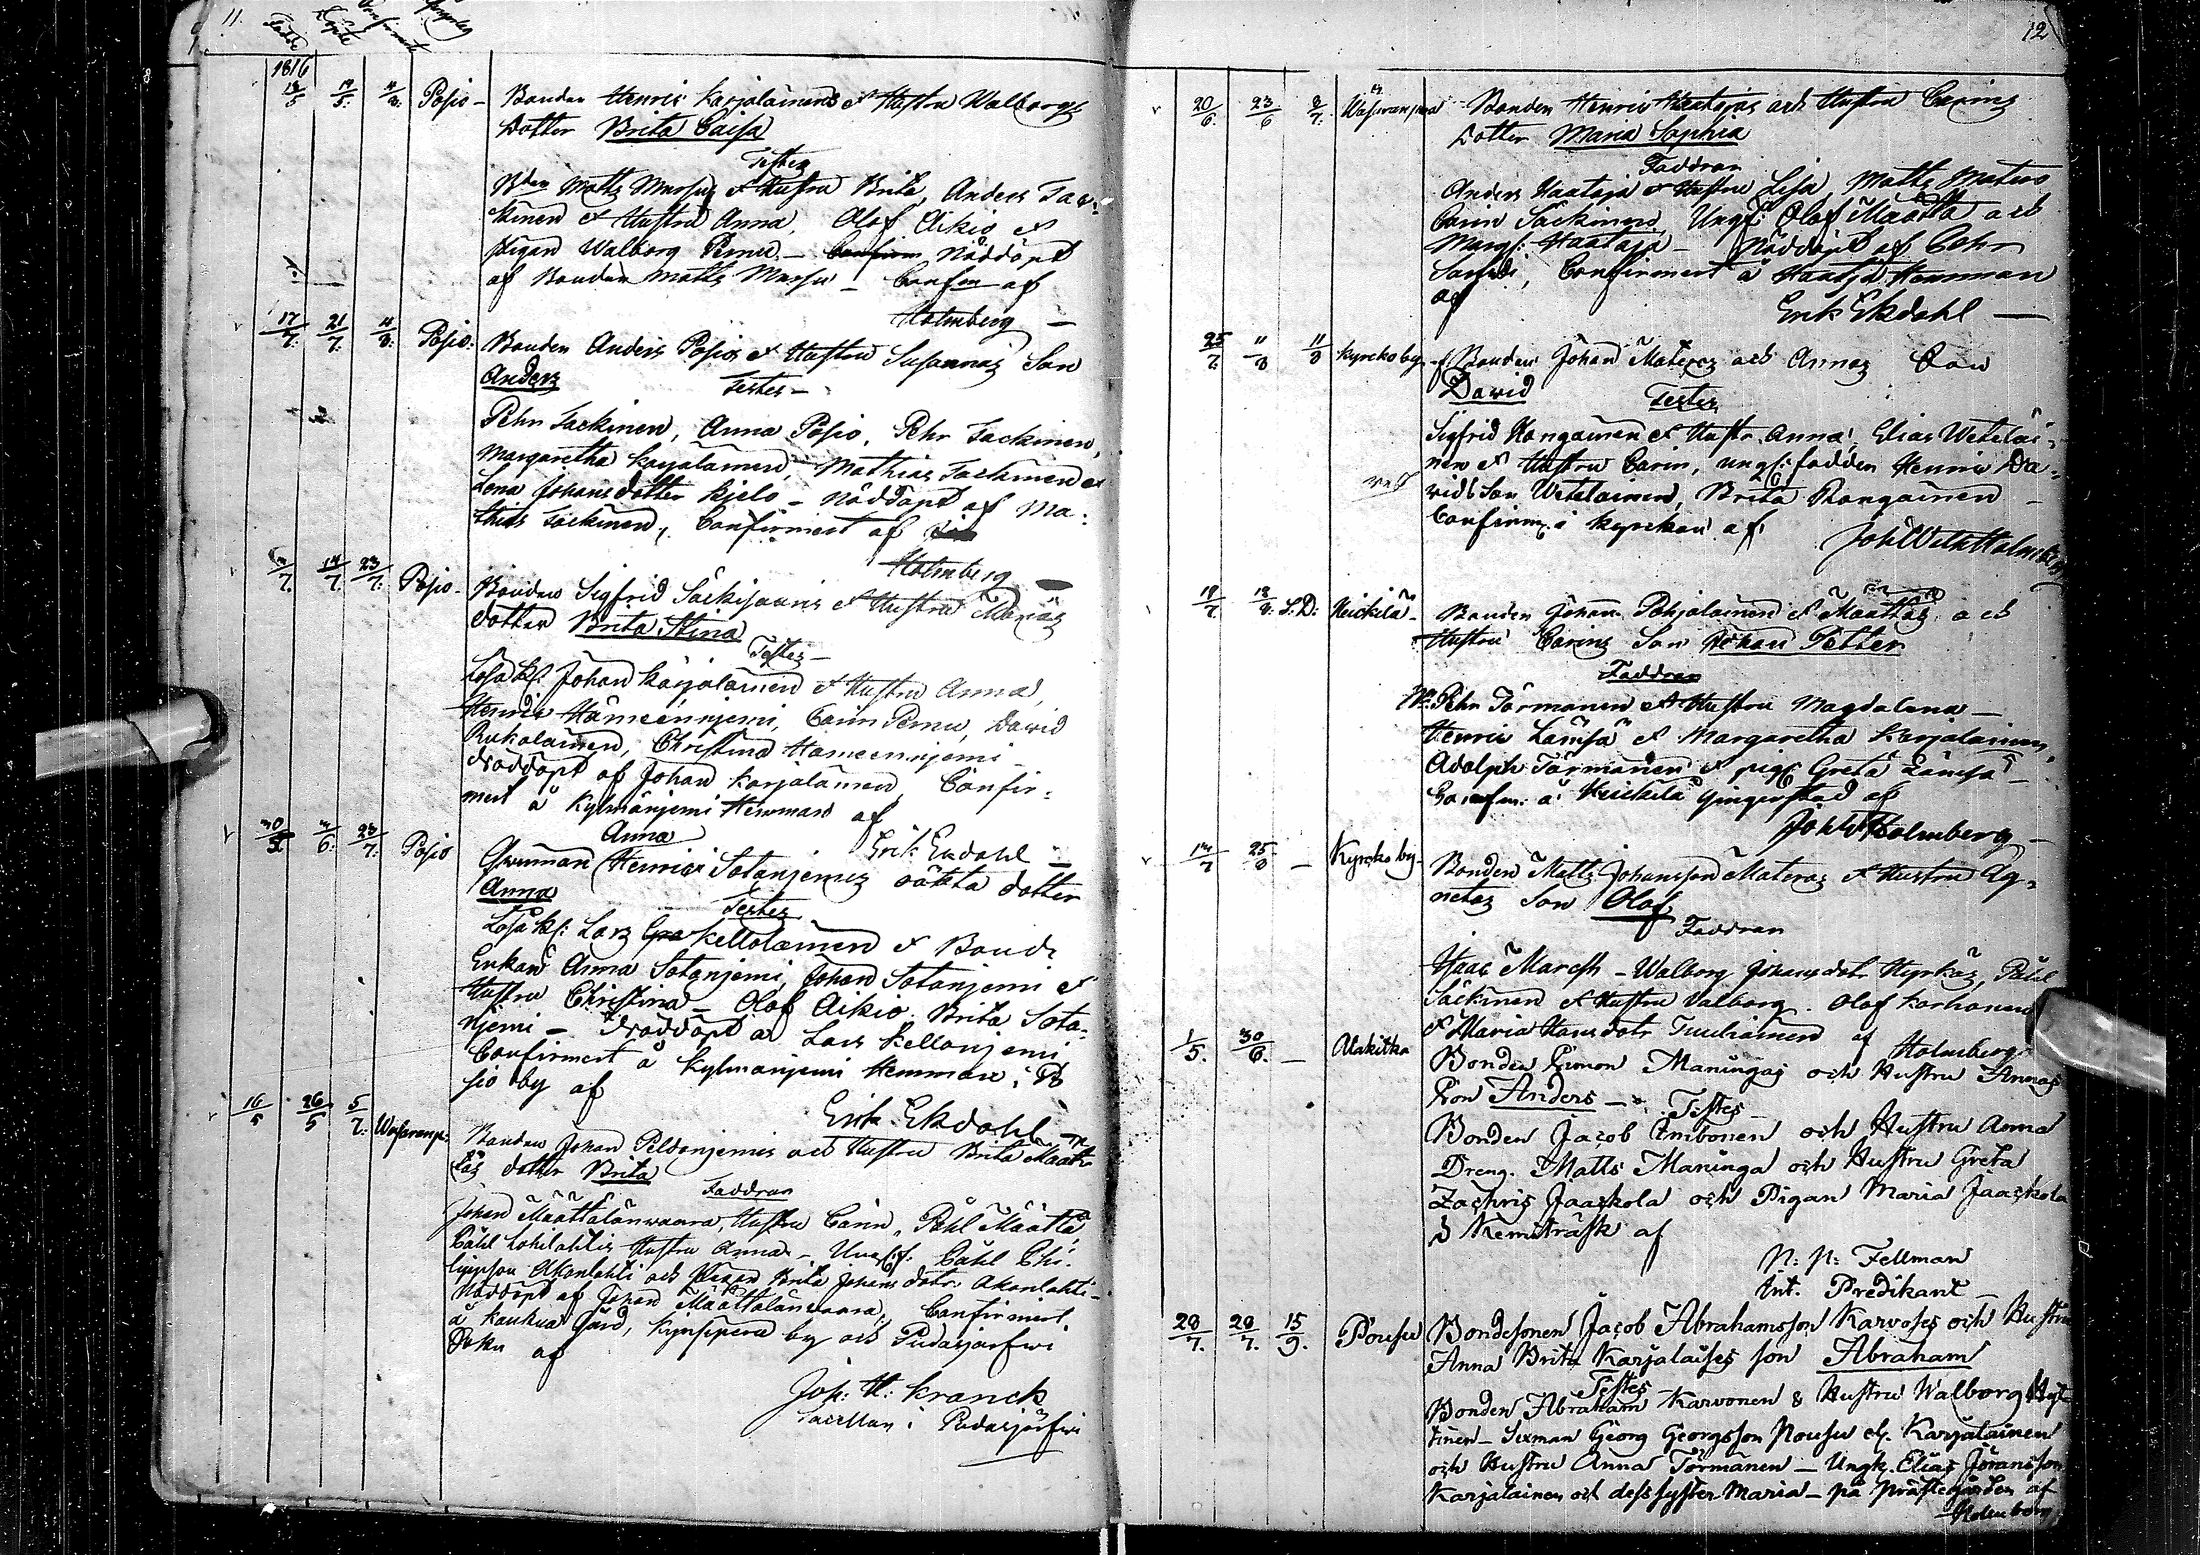 11.
Födde Döpte
1816
18/5 19/5 11/8 Posio - Bonden Henric Karjalainens & Hustru Walborgs
Dotter Brita Caisa
Testes
Matts Mursu & Hustru Brita, Anders Jac-
kinen & Hustru Anna, Olof Aikio &
Pigan Walborg Pernu. — Nöddöpt
af Bonden Matts Mursu — Conf af
Holmberg —
17/7 21/7 11/8 Posio: Bonden Anders Posios & Hustru Susannas Son
Anders Testes —
Pehr Jackinen, Anna Posio, Pehr Jackinen,
Margaretha Karjalainen, Mathias Jackinen &
Lena Johansdotter Kjelo — nöddöpt af Ma-
thias Jackinen, Confirmert af
Holmberg
7. 14/7. 23/7. Posio - Bonden Sigfrid Säckijärvis & Hustru Marias
dotter Brita Stina
Testes —
Johan Karjalainen & Hustru Anna,
Henric Hämeenniemi, Carin Pernu, David
Rukalainen, Christina Hämeenniemi —
nöddöpt af Johan Karjalainen, Confir-
mert å Kylmänjemi Hemman af
Erik Ekdahl —
30/5 6. 23/7. Posio Anna
Qwinnan Henrici Sotanjemis oäkta dotter
Anna
Testes
Lars Kellolainen & Bond
Enkan Anna Sotanjemi, Johan Sotanjemi &
Hustru Christina — Olof Aikio. Brita Sota-
njemi — nöddöpt af Lars Kellonjemi
Confirmert å Kylmanjemi Hemman i Po
sio by af
Erik Ekdahl —
16/5 26/5 5/7. Wasaranp: Bonden Johan Peldonjemis och Hustru Brita Määt-
täs dotter Brita
Faddran
Johan Määttälänwaara, Hustru Carin, Påhl Määttä,
Påhl Lohilahtis Hustru Anna — Påhl Phi-
lippson Akonlahti och Pigan Brita Johans dotr Akonlahti —
Nöddöpt af Johan Määttälänwaara, Confirmert
å Kaukua Gård, by och Pudasjärfwi
Sokn af
Joh: H: Kranck
Sacellan i Pudasjärfwi
12
20/6. 23/6 8/7. Wasaranperä Bonden Henric Haatajas och Hustru Carins
Dotter Maria Sophia
Faddran
Anders Haataja & Hustru Lisa, Matts Matero,
Carin Säckinen, Ungf: Olof Määttä och
Marg: Haataja — Nöddöpt af Pehr
Confirmert å Haataja Hemman
af Erik Ekdahl —
25/7. 11/8 11/8 Kyrckoby - Bonden Johan Materos och Annas Son
David
Testes
Sigfrid Hangainen & Hustr. Anna, Elias Wetelai-
nen & Hustru Carin, ungf: Henric Da-
vidsSon Wetelainen, Brita Rongainen —
Confirm. i Kyrckan af
Joh Wilh Holmberg
19/7. 18/8. S: D: Heickilä - Bonden Johan Pohjolainen & Määttäs och
Hustru Carins Son Johan Petter
Faddran
Pehr Törmänen & Hustru Magdalena —
Henric Lämsä & Margaretha Karjalainen,
Adolph Törmänen & pig: Greta Lämsä —
Confm: å Heickilä Gingerstad af
Joh W Holmberg —
7 25/8 — Kyrckoby - Bonden Matts Johansson Materos & Hustru Ag-
netas Son Olof
Faddran
Isaac Maresk - Walborg Johansdotr Hyrkäs, Påhl
Säckinen & Hustru Valborg. Olof Karhonen
& Maria Hansdotr Tuuliainen af Holmberg
1/5. 30/6. — Alakitka Bonden Simon Maningas och Hustru Annas
Son Anders — Testes —
Bonden Jacob Imbonen och Hustru Anna
Dreng. Matts Maninga och Hustru Greta
Zachris Jaaskola och Pigan Maria Jaaskola
I Kemiträsk af
N: N: Fellman
Int. Predikant —
28/7. 28/7. 15/9. Pousu Bondesonen Jacob Abrahamsson Karvoses och Hustru
Anna Brita Karjalaises son Abraham
Testes
Bonden Abraham Karvonen & Hustru Walborg Hyt-
tinen — Sexman Georg Georgsson Pousu el. Karjalainen
och Hustru Anna Törmänen — Ungk. Elias Jöransson
Karjalainen och dess syster Maria — på prästegården af
Holmberg